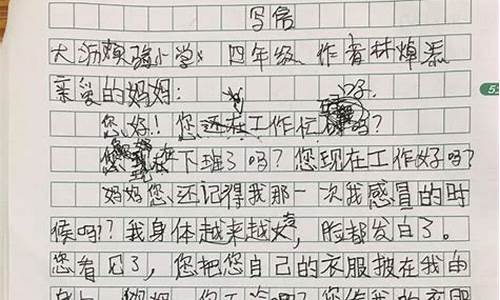 写信
大沥实验小学 四年级 作者林焯
亲爱的妈妈:
好
您好!您还在工作忙吗?
您现在下班了吗?您现在工作好吗?
妈妈您还记得我那一次我感冒的时
候吗?我身体越来越,脸都发白了。
您看见了,您把您自己的衣服披在我的
身上,妈妈,您冷吗?您给我的衣服